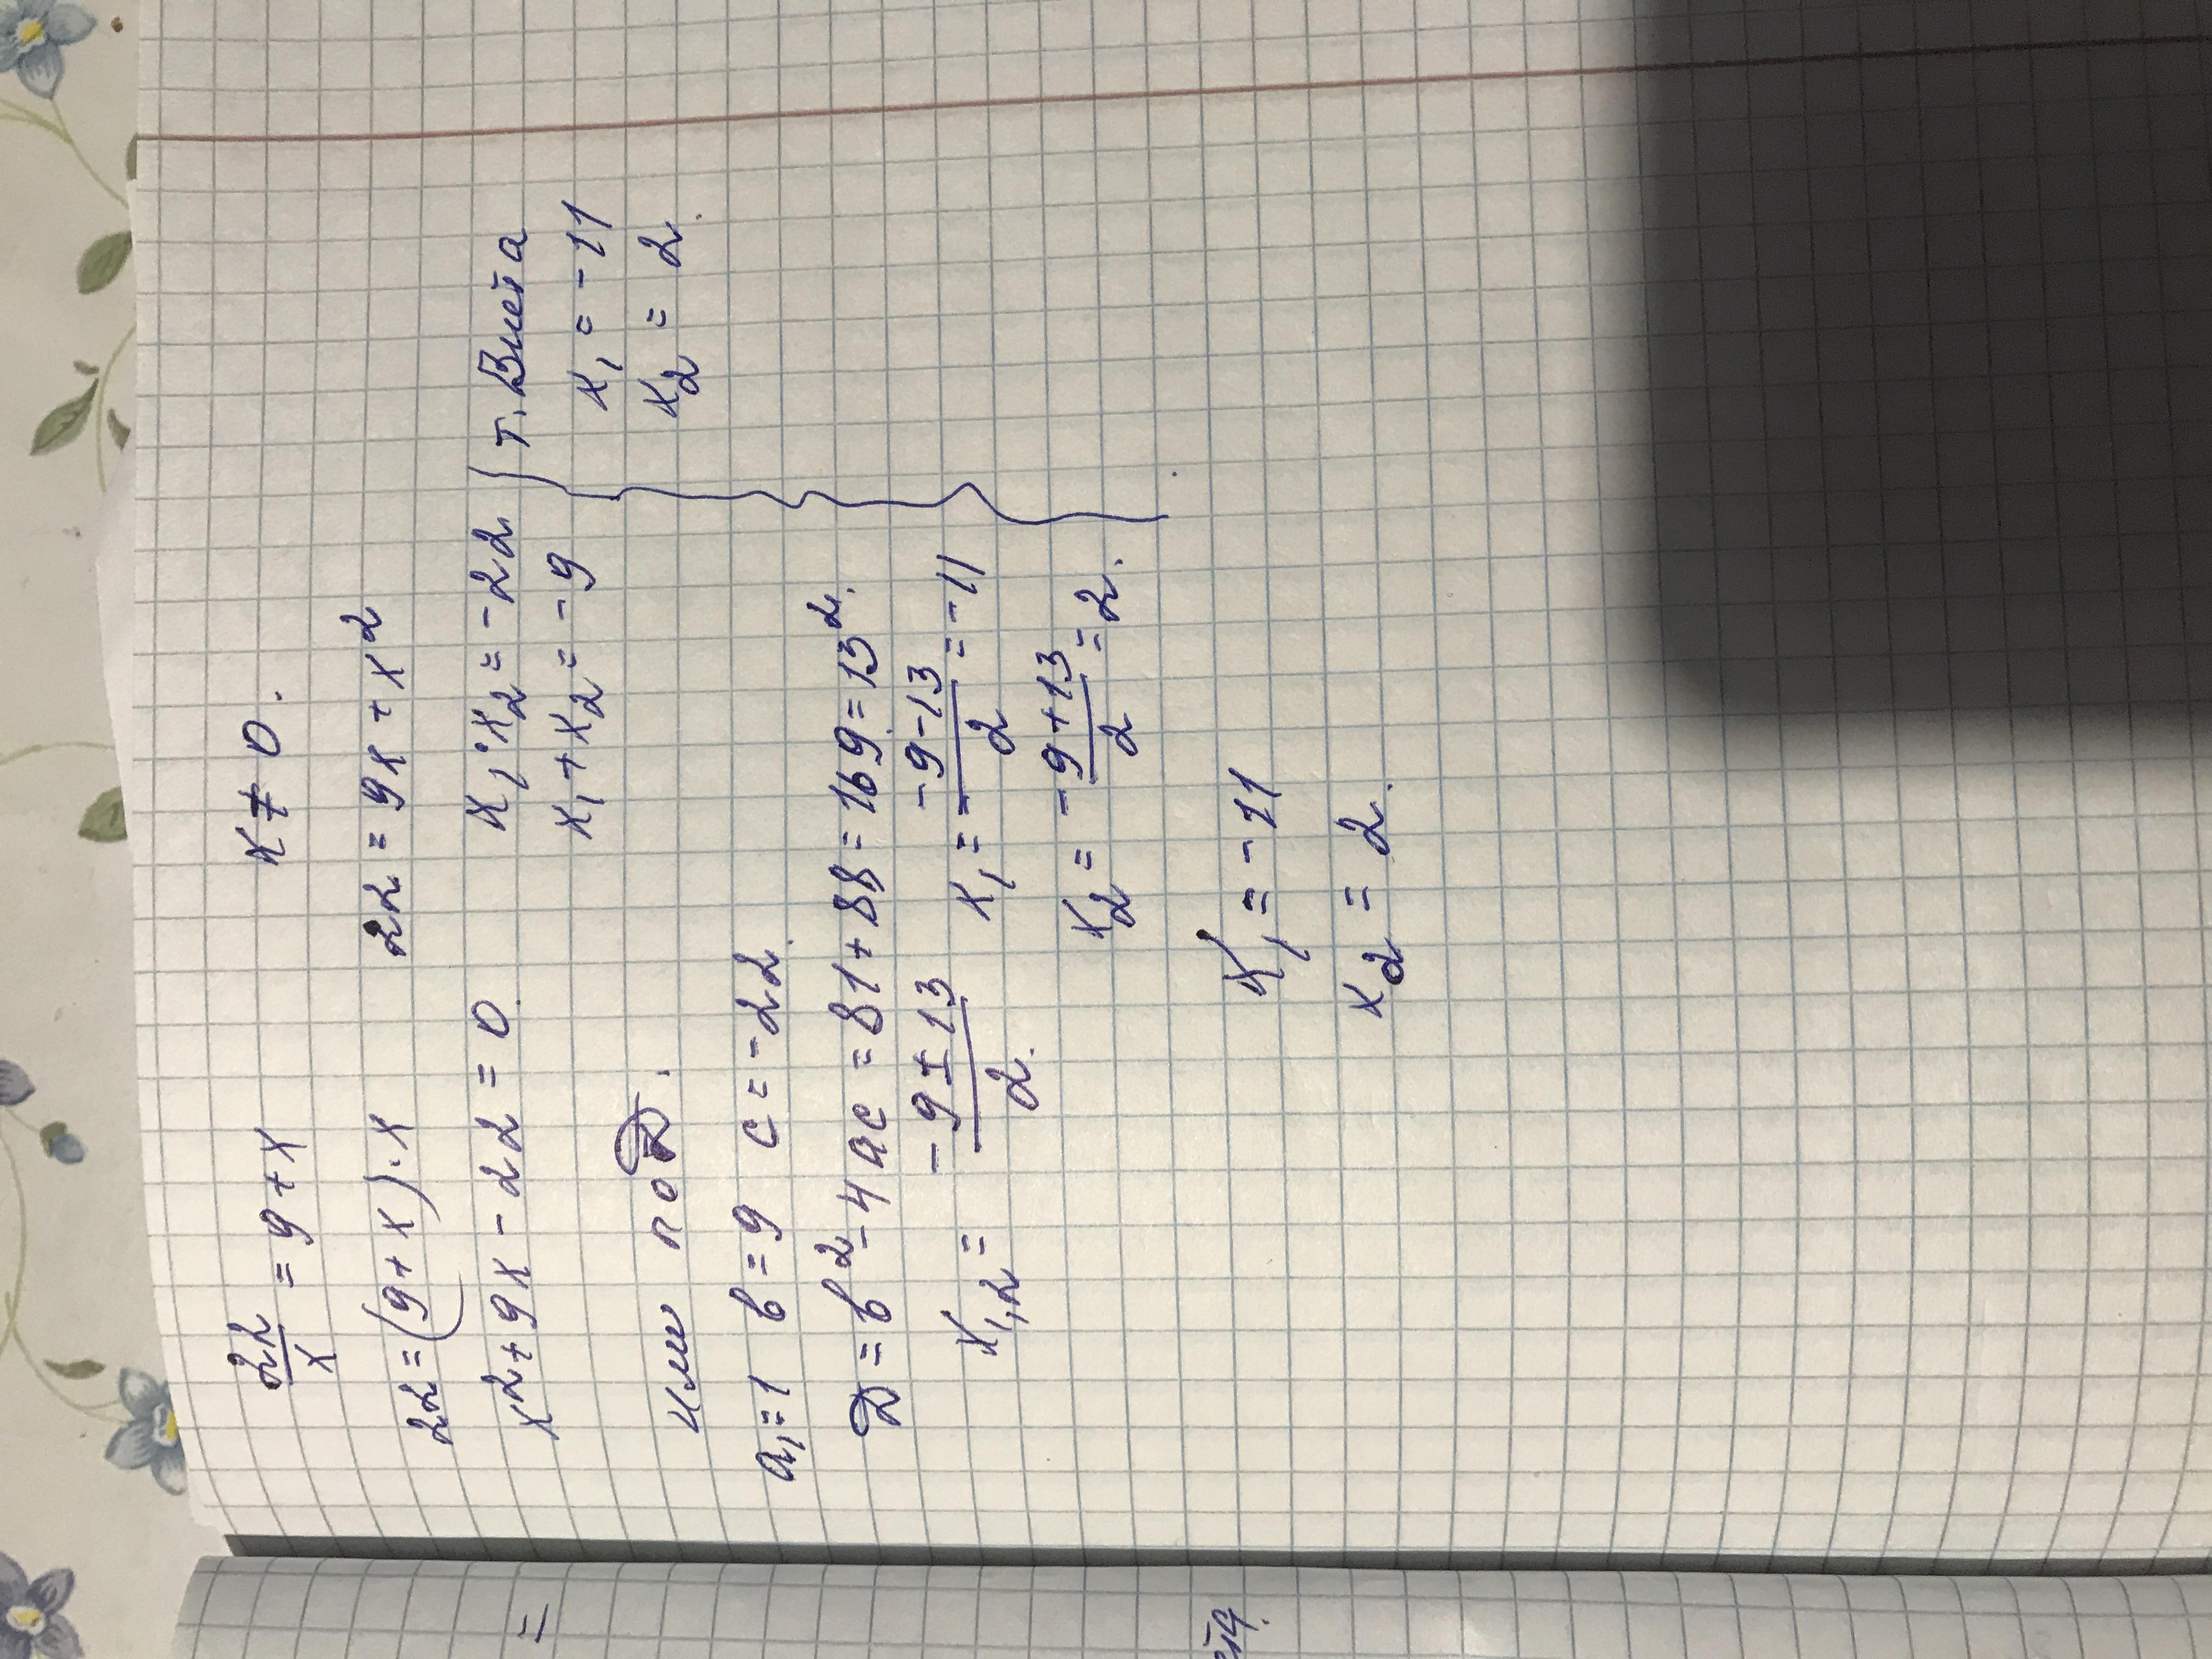 22/x = 9 + x   x ≠ 0.
22 = (9 + x) · x   22 = 9x + x²
x² + 9x - 22 = 0.   x₁ · x₂ = -22   т. Виета
x₁ + x₂ = -9   x₁ = -11
x₂ = 2.
или по D.
a₁ = 1   b = 9   c = -22.
D = b² - 4ac = 81 + 88 = 169 = 13².
x₁,₂ = (-9 ± 13)/2.   x₁ = (-9 - 13)/2 = -11
x₂ = (-9 + 13)/2 = 2.
x₁ = -11
x₂ = 2.
=